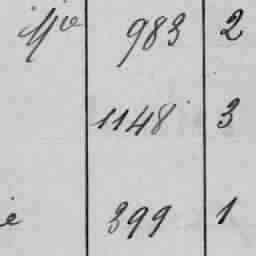 983 2
1148 3
399 1